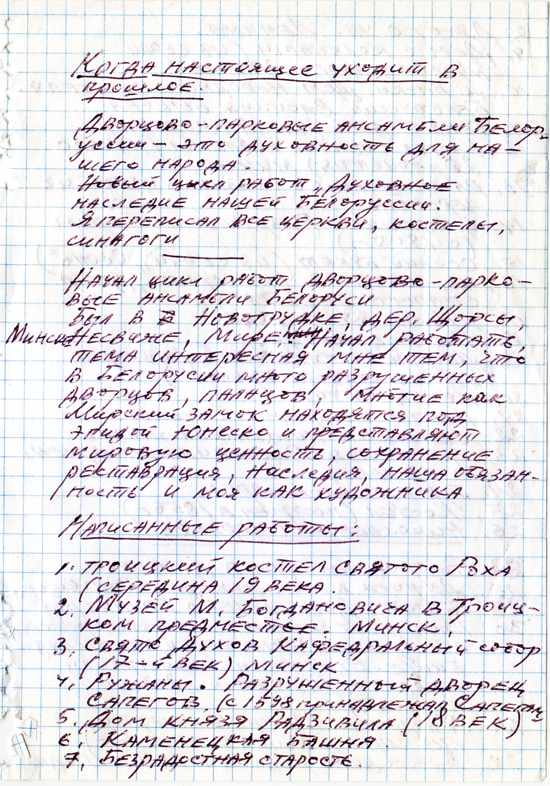 Когда настоящее уходит в
прошлое.
Дворцово-парковые ансамбли Белор-
уссии – это духовность для на-
шего народа.
Новый цикл работ „Духовное
наследие нашей Белоруссии.
Я переписал все церкви, костелы,
синагоги
Начал цикл работ дворцово-парко-
вые ансамбли Белоруси
Был в Новогрудке, дер. Щорсы,
Минске Несвиже, Мире, Начал работать,
тема интересная мне тем, что
в Белорусии много разрушенных
дворцов, палацов, многие как
Мирский замок находятся под
эгидой Юнеско и представляют
мировую ценность, сохранение
реставрация, наследия, наша обязан-
ность и моя как художника.
Написанные работы:
1. Троицкий костел святого Роха
(середина 19 века.
2. Музей М. Богдановича в Троиц-
ком предместье. Минск.
3. Свято Духов Кафедральный собор
(17-й век) Минск
4. Ружаны. Разрушенный дворец
Сапегов. (с 1598 принадлежал Сапегам
5. Дом князя Радзивила (18 век)
6. Каменецкая Башня.
7. Безрадостная старость.